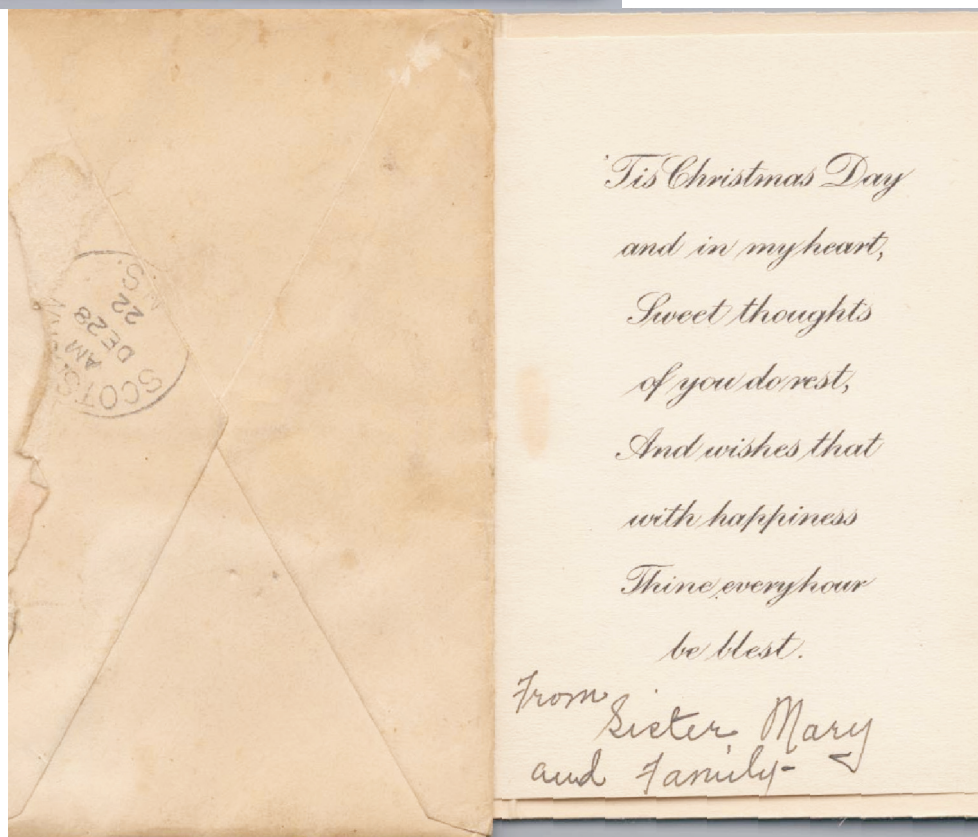 SCOTS
AM
DE 28
22
N.S.
'Tis Christmas Day
and in my heart,
Sweet thoughts
of you do rest,
And wishes that
with happiness
Thine every hour
be blest.
From
Sister Mary
and Family-